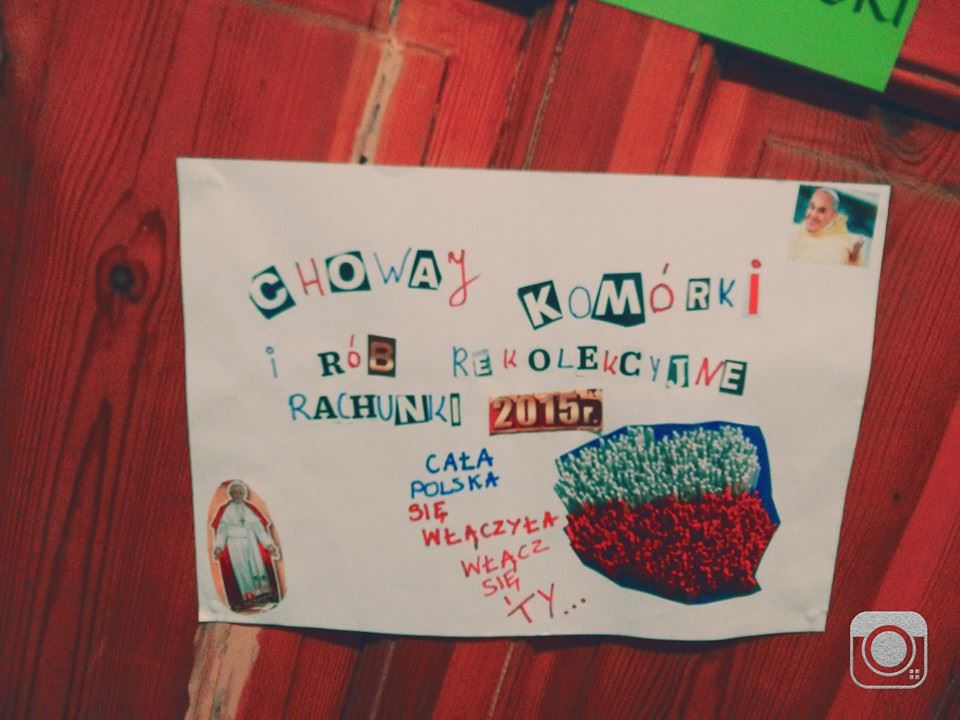 CHOWAJ KOMÓRKI
i RÓB REKOLEKCYJNE
RACHUNKI 2015r.
CAŁA
POLSKA
SIĘ
WŁĄCZYŁA
WŁĄCZ
SIĘ
i TY...